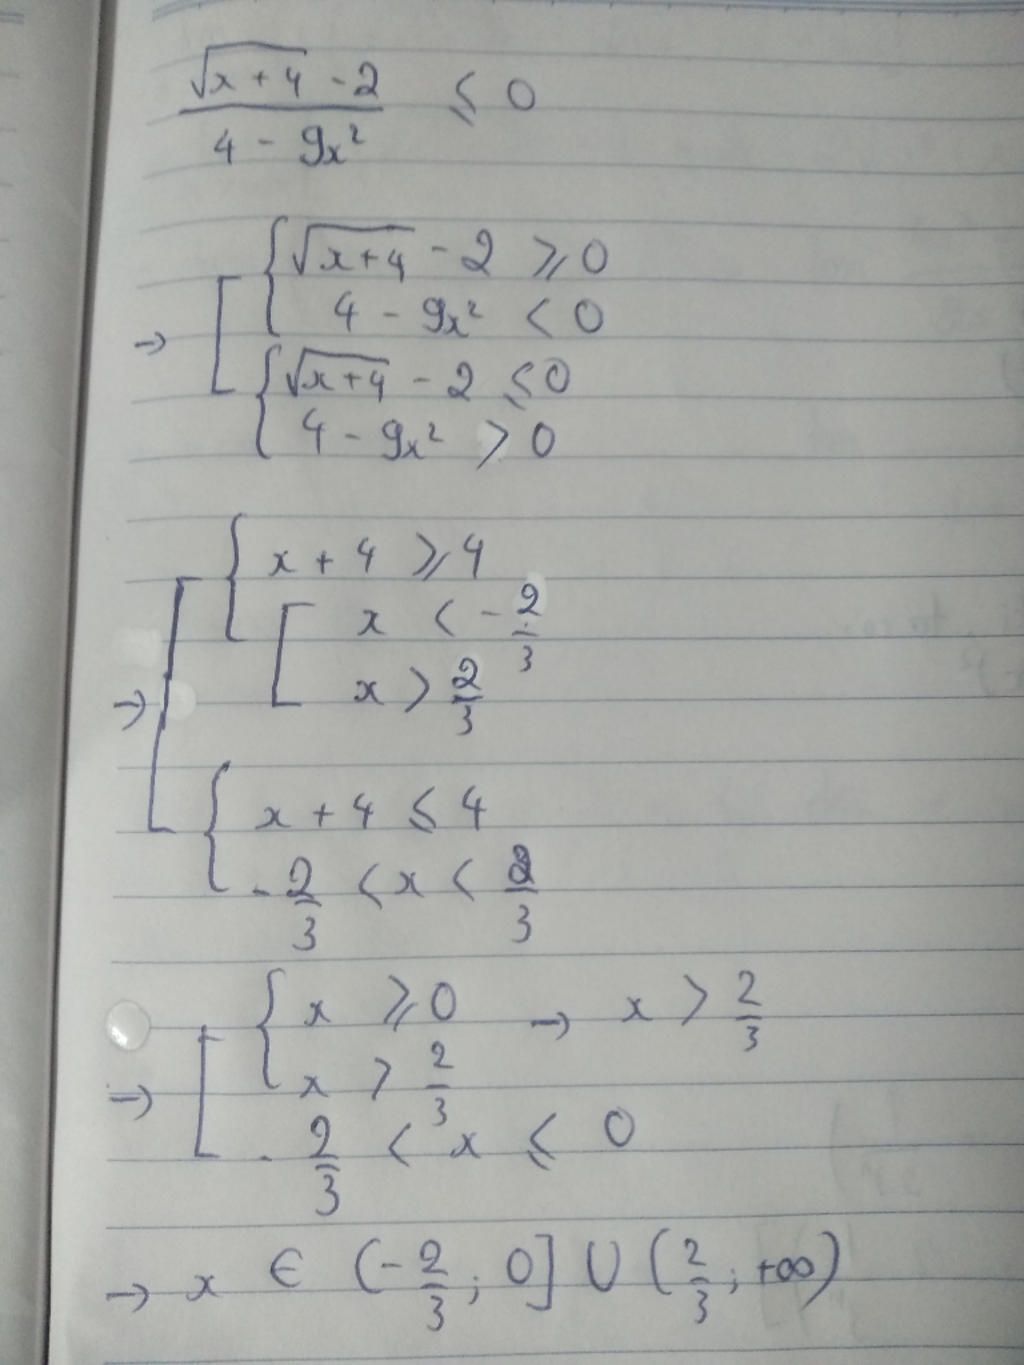 (√(x+4) - 2)/(4 - 9x²) ≤ 0
→ [ { √(x+4) - 2 ≥ 0
4 - 9x² < 0
{ √(x+4) - 2 ≤ 0
4 - 9x² > 0
→ [ { x + 4 ≥ 4
[ x < -2/3
x > 2/3
{ x + 4 ≤ 4
-2/3 < x < 2/3
→ [ { x ≥ 0 → x > 2/3
x > 2/3
-2/3 < x ≤ 0
→ x ∈ (-2/3; 0] ∪ (2/3; +∞)